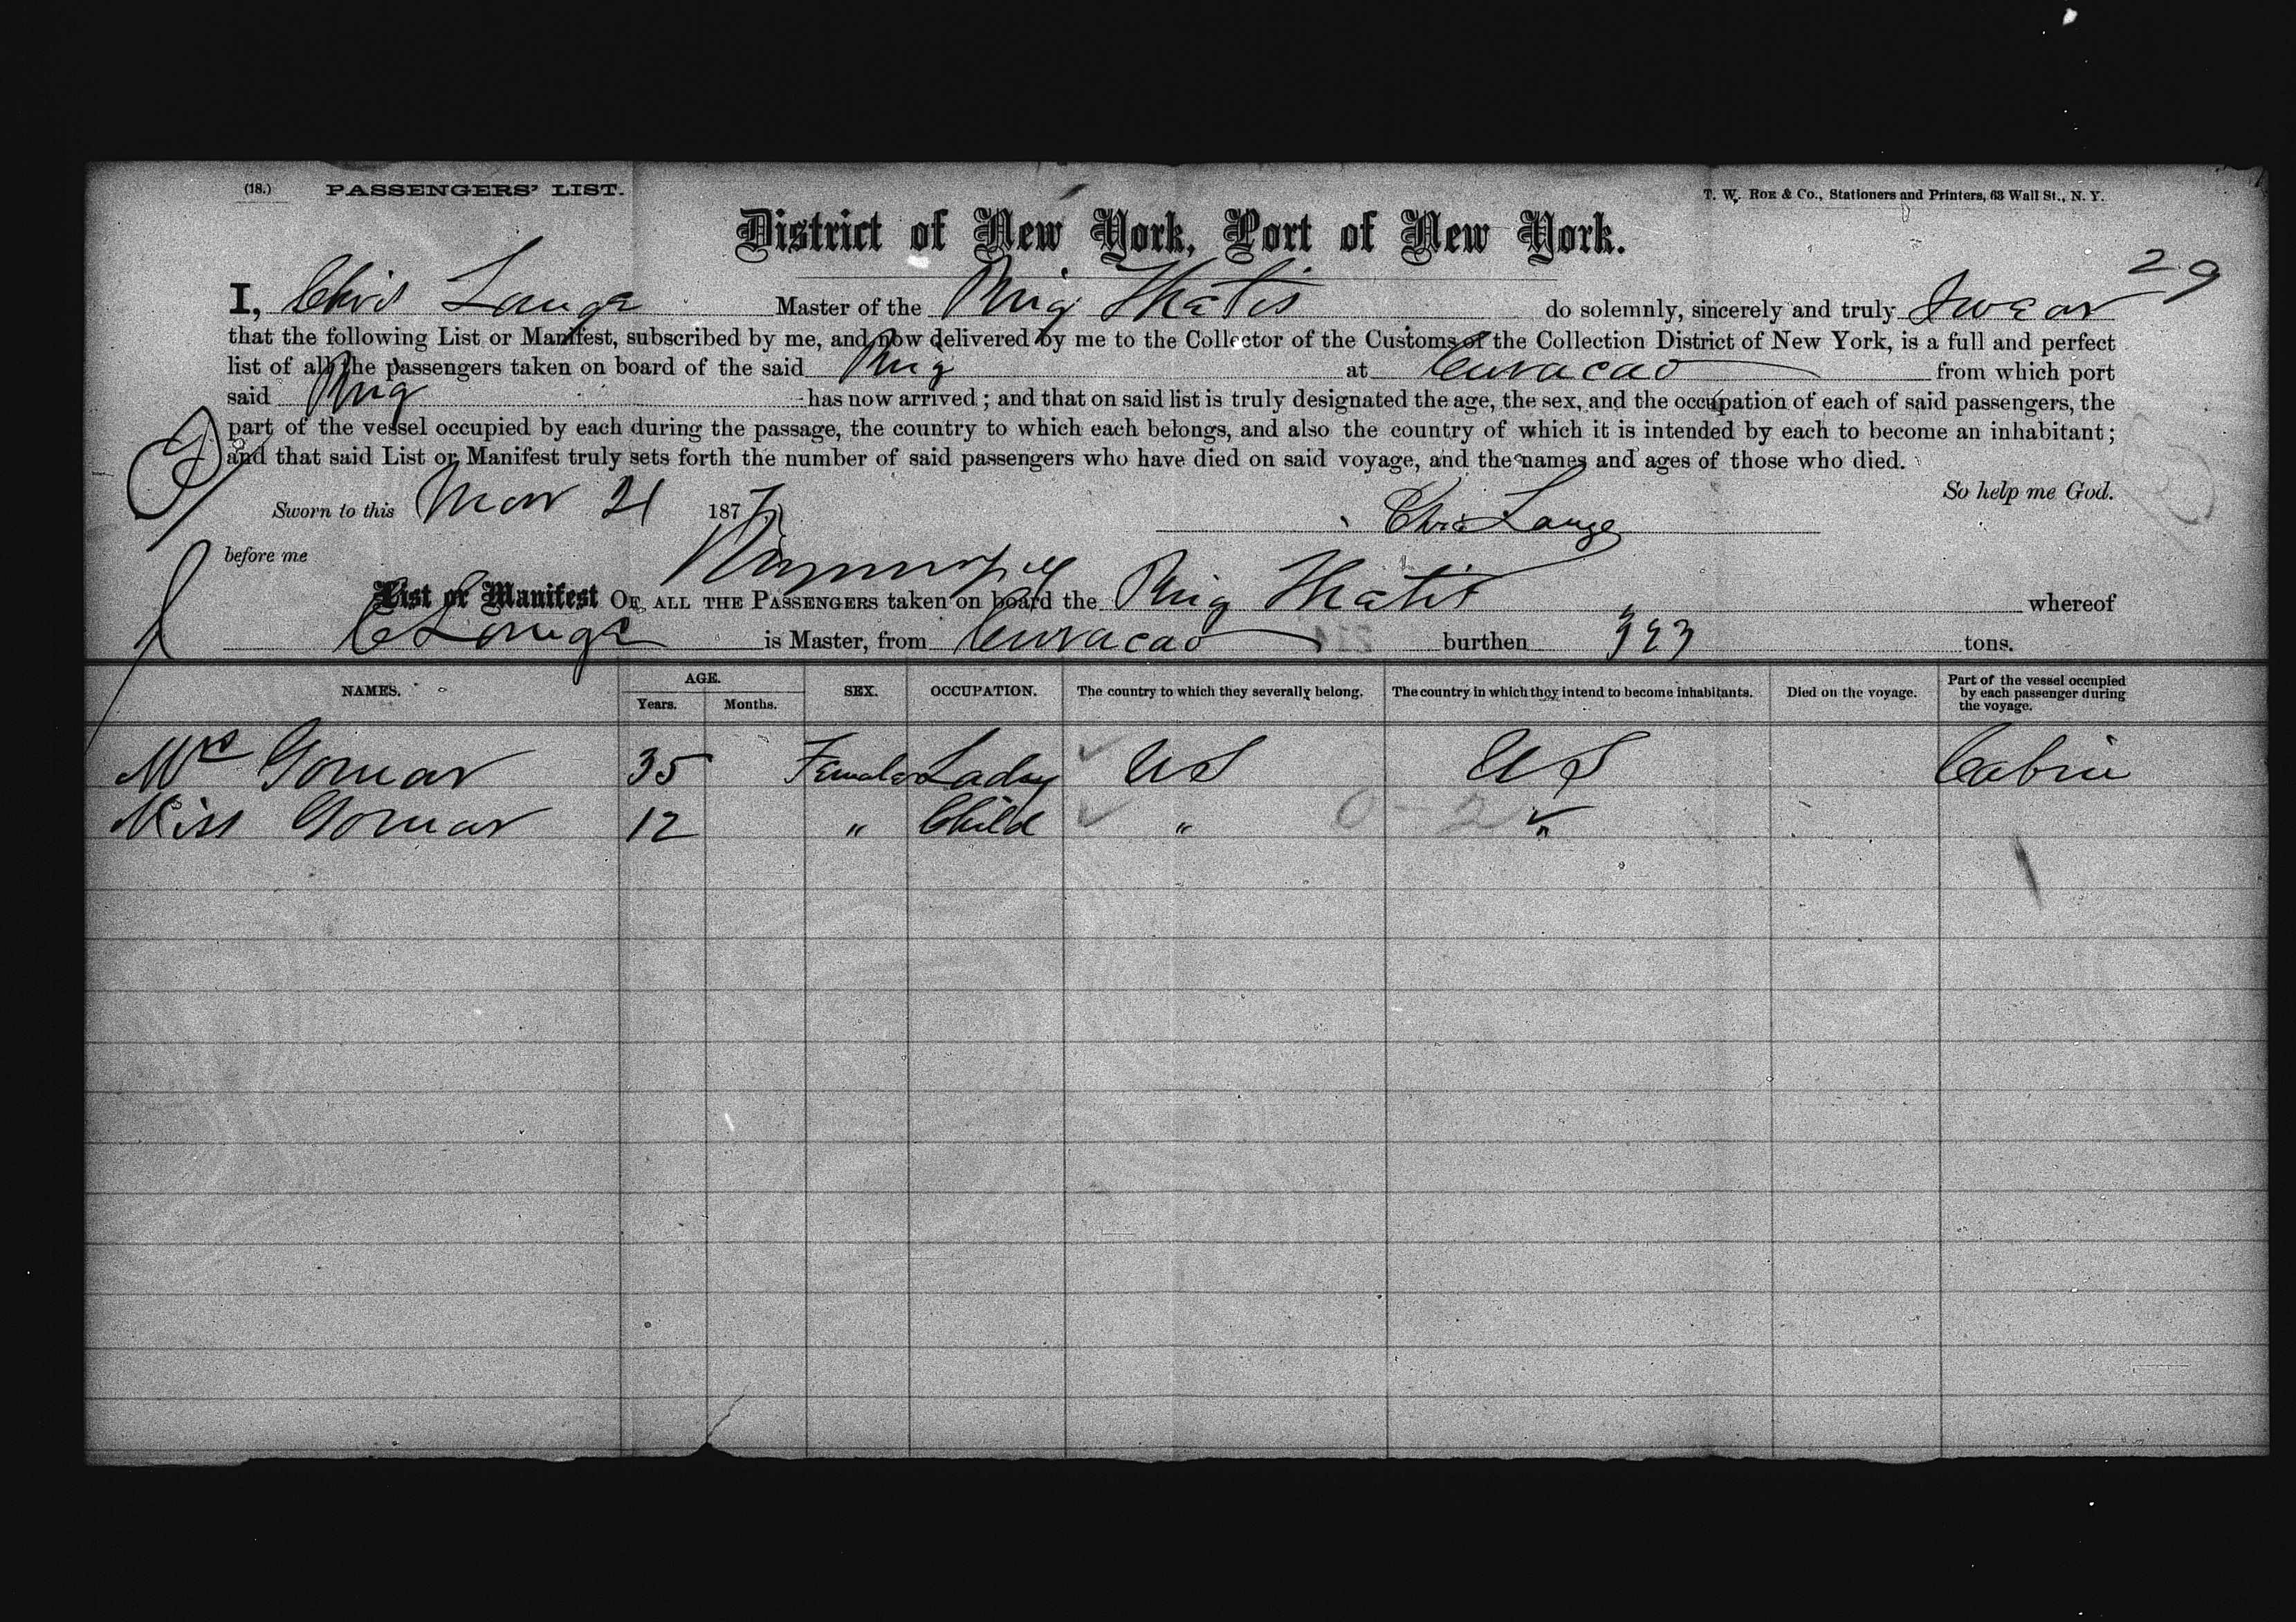 (18.) PASSENGERS' LIST.
T. W. ROE & CO., Stationers and Printers, 63 Wall St., N. Y.
District of New York, Port of New York.
29
I, Chris Lange Master of the Brig Thetis do solemnly, sincerely and truly Swear
that the following List or Manifest, subscribed by me, and now delivered by me to the Collector of the Customs of the Collection District of New York, is a full and perfect
list of all the passengers taken on board of the said Brig at Curacao from which port
said Brig has now arrived; and that on said list is truly designated the age, the sex, and the occupation of each of said passengers, the
part of the vessel occupied by each during the passage, the country to which each belongs, and also the country of which it is intended by each to become an inhabitant;
and that said List or Manifest truly sets forth the number of said passengers who have died on said voyage, and the names and ages of those who died.
So help me God.
Sworn to this Mar 21 187
Chris Lange
before me
List or Manifest OF ALL THE PASSENGERS taken on board the Brig Thetis whereof
C Lange is Master, from Curacao burthen 323 tons.
NAMES. AGE. Years. Months. SEX. OCCUPATION. The country to which they severally belong. The country in which they intend to become inhabitants. Died on the voyage. Part of the vessel occupied by each passenger during the voyage.
Mrs Gomar 35 Female Lady US US Cabin
Miss Gomar 12 " Child " "